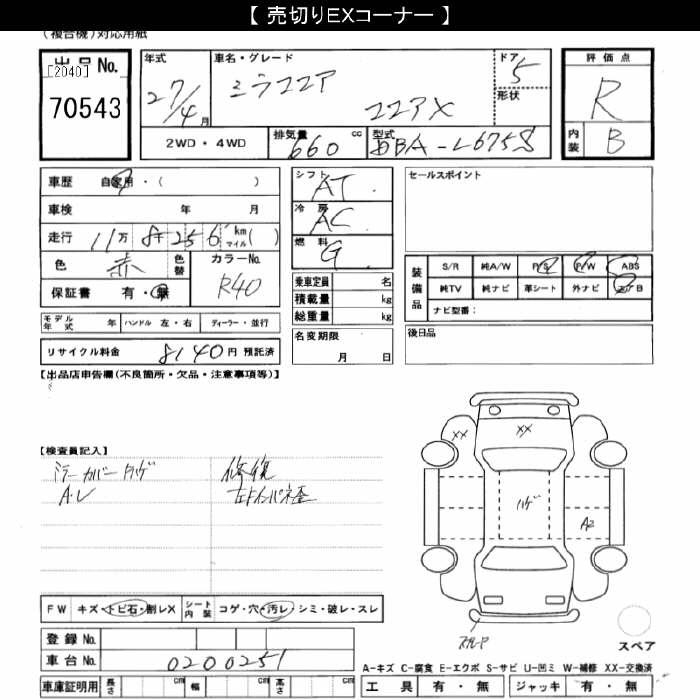 【 売切りEXコーナー 】
(複合機)対応用紙
出品No.
[2040]
70543
年式
27/4月
車名・グレード
ミラココア
ココアX
ドア
5
形状
評価点
R
内装
B
2WD・4WD
排気量
660
cc
型式
DBA-L675S
車歴
自家用・( )
車検 年 月
走行 11万8千256km マイル( )
色
赤
色替
カラーNo.
R40
保証書 有・無
モデル年式 年
ハンドル 左・右
ディーラー・並行
リサイクル料金 8140円 預託済
シフト
AT
冷房
AC
燃料
G
乗車定員 名
積載量 kg
総重量 kg
名変期限
月 日
セールスポイント
装備品
S/R
純A/W
P/S
P/W
ABS
純TV
純ナビ
革シート
外ナビ
エアB
ナビ型番:
後日品
【出品店申告欄(不良箇所・欠品・注意事項等)】
【検査員記入】
ミラーカバーハゲ
A・U
修復
XX
XX
ハゲ
A2
スペア
FW
キズ・トビ石・割レX
シート内装
コゲ・穴・汚レ・シミ・破レ・スレ
登録No.
車台No.
0200251
車庫証明用
長さ
cm
幅
cm
高さ
cm
A-キズ C-腐食 E-エクボ S-サビ U-凹ミ W-補修 XX-交換済
工具 有・無
ジャッキ 有・無